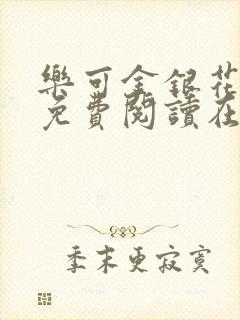 樂可金銀花
免費閱讀在
季末更寂寞